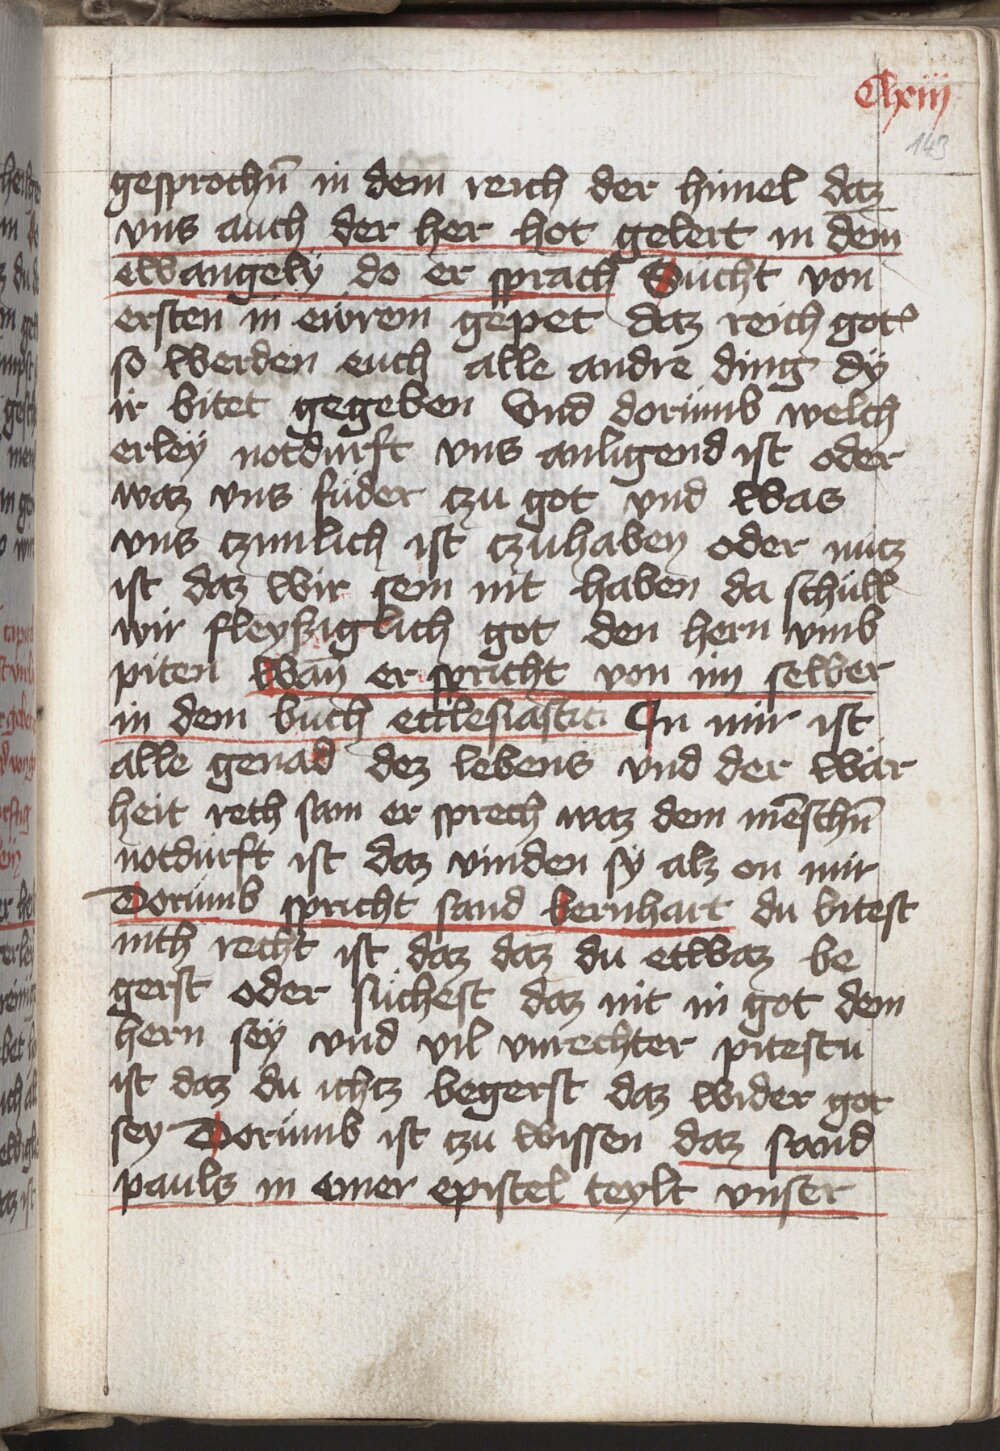 Clxiij
143
gesprochn̄ in dem reich der himel daz
vns auch der her hot gelert in dem
ewangely do er sprach Sucht von
ersten in ewrem gepet daz reich gotz
so werden euch alle andre ding dÿ
ir bitet gegeben Vnd dorumb welch
erleÿ notdurft vns anligend ist oder
waz vns fuder czu got vnd was
vns czimlich ist czuhaben oder nucz
ist daz wir sein nit haben da schull
wir fleyssiglich got den hern vmb
piten Wan̄ er spricht von im selber
in dem buch ecclesiastici In mir ist
alle genad dez lebens vnd der war
heit reth sam er sprech waz dem mēschn̄
notdurft ist daz vinden sy alz en mir
Dorumb spricht sand bernhart du bitest
nith recht ist daz daz du etwaz be
gerst oder suchest daz nit in got dem
hern seÿ vnd vil vnrechter pitestu
ist daz du ichcz begerst daz wider got
sey Dorumb ist czu wissen daz sand
pauls in einer epistel teylt vnser